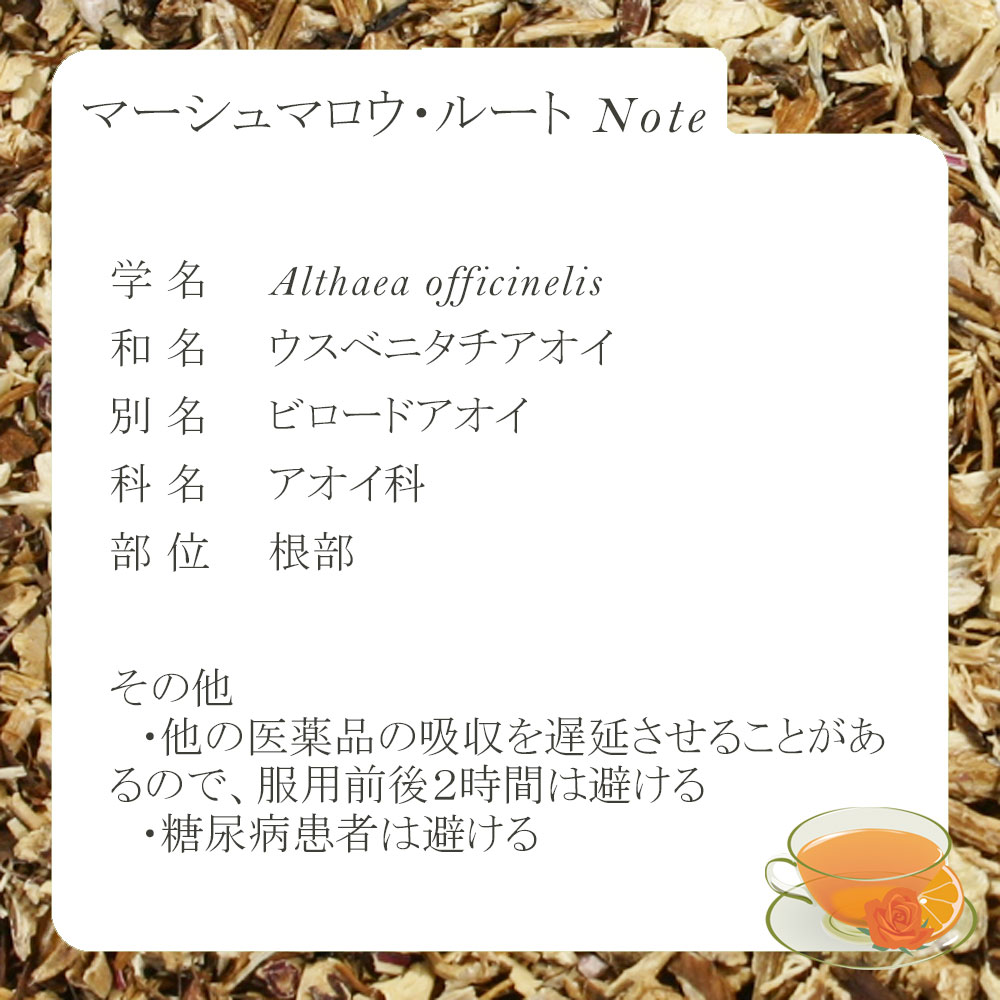 マーシュマロウ・ルート Note
学名 Althaea officinelis
和名 ウスベニタチアオイ
別名 ビロードアオイ
科名 アオイ科
部位 根部
その他
・他の医薬品の吸収を遅延させることがあ
るので、服用前後2時間は避ける
・糖尿病患者は避ける